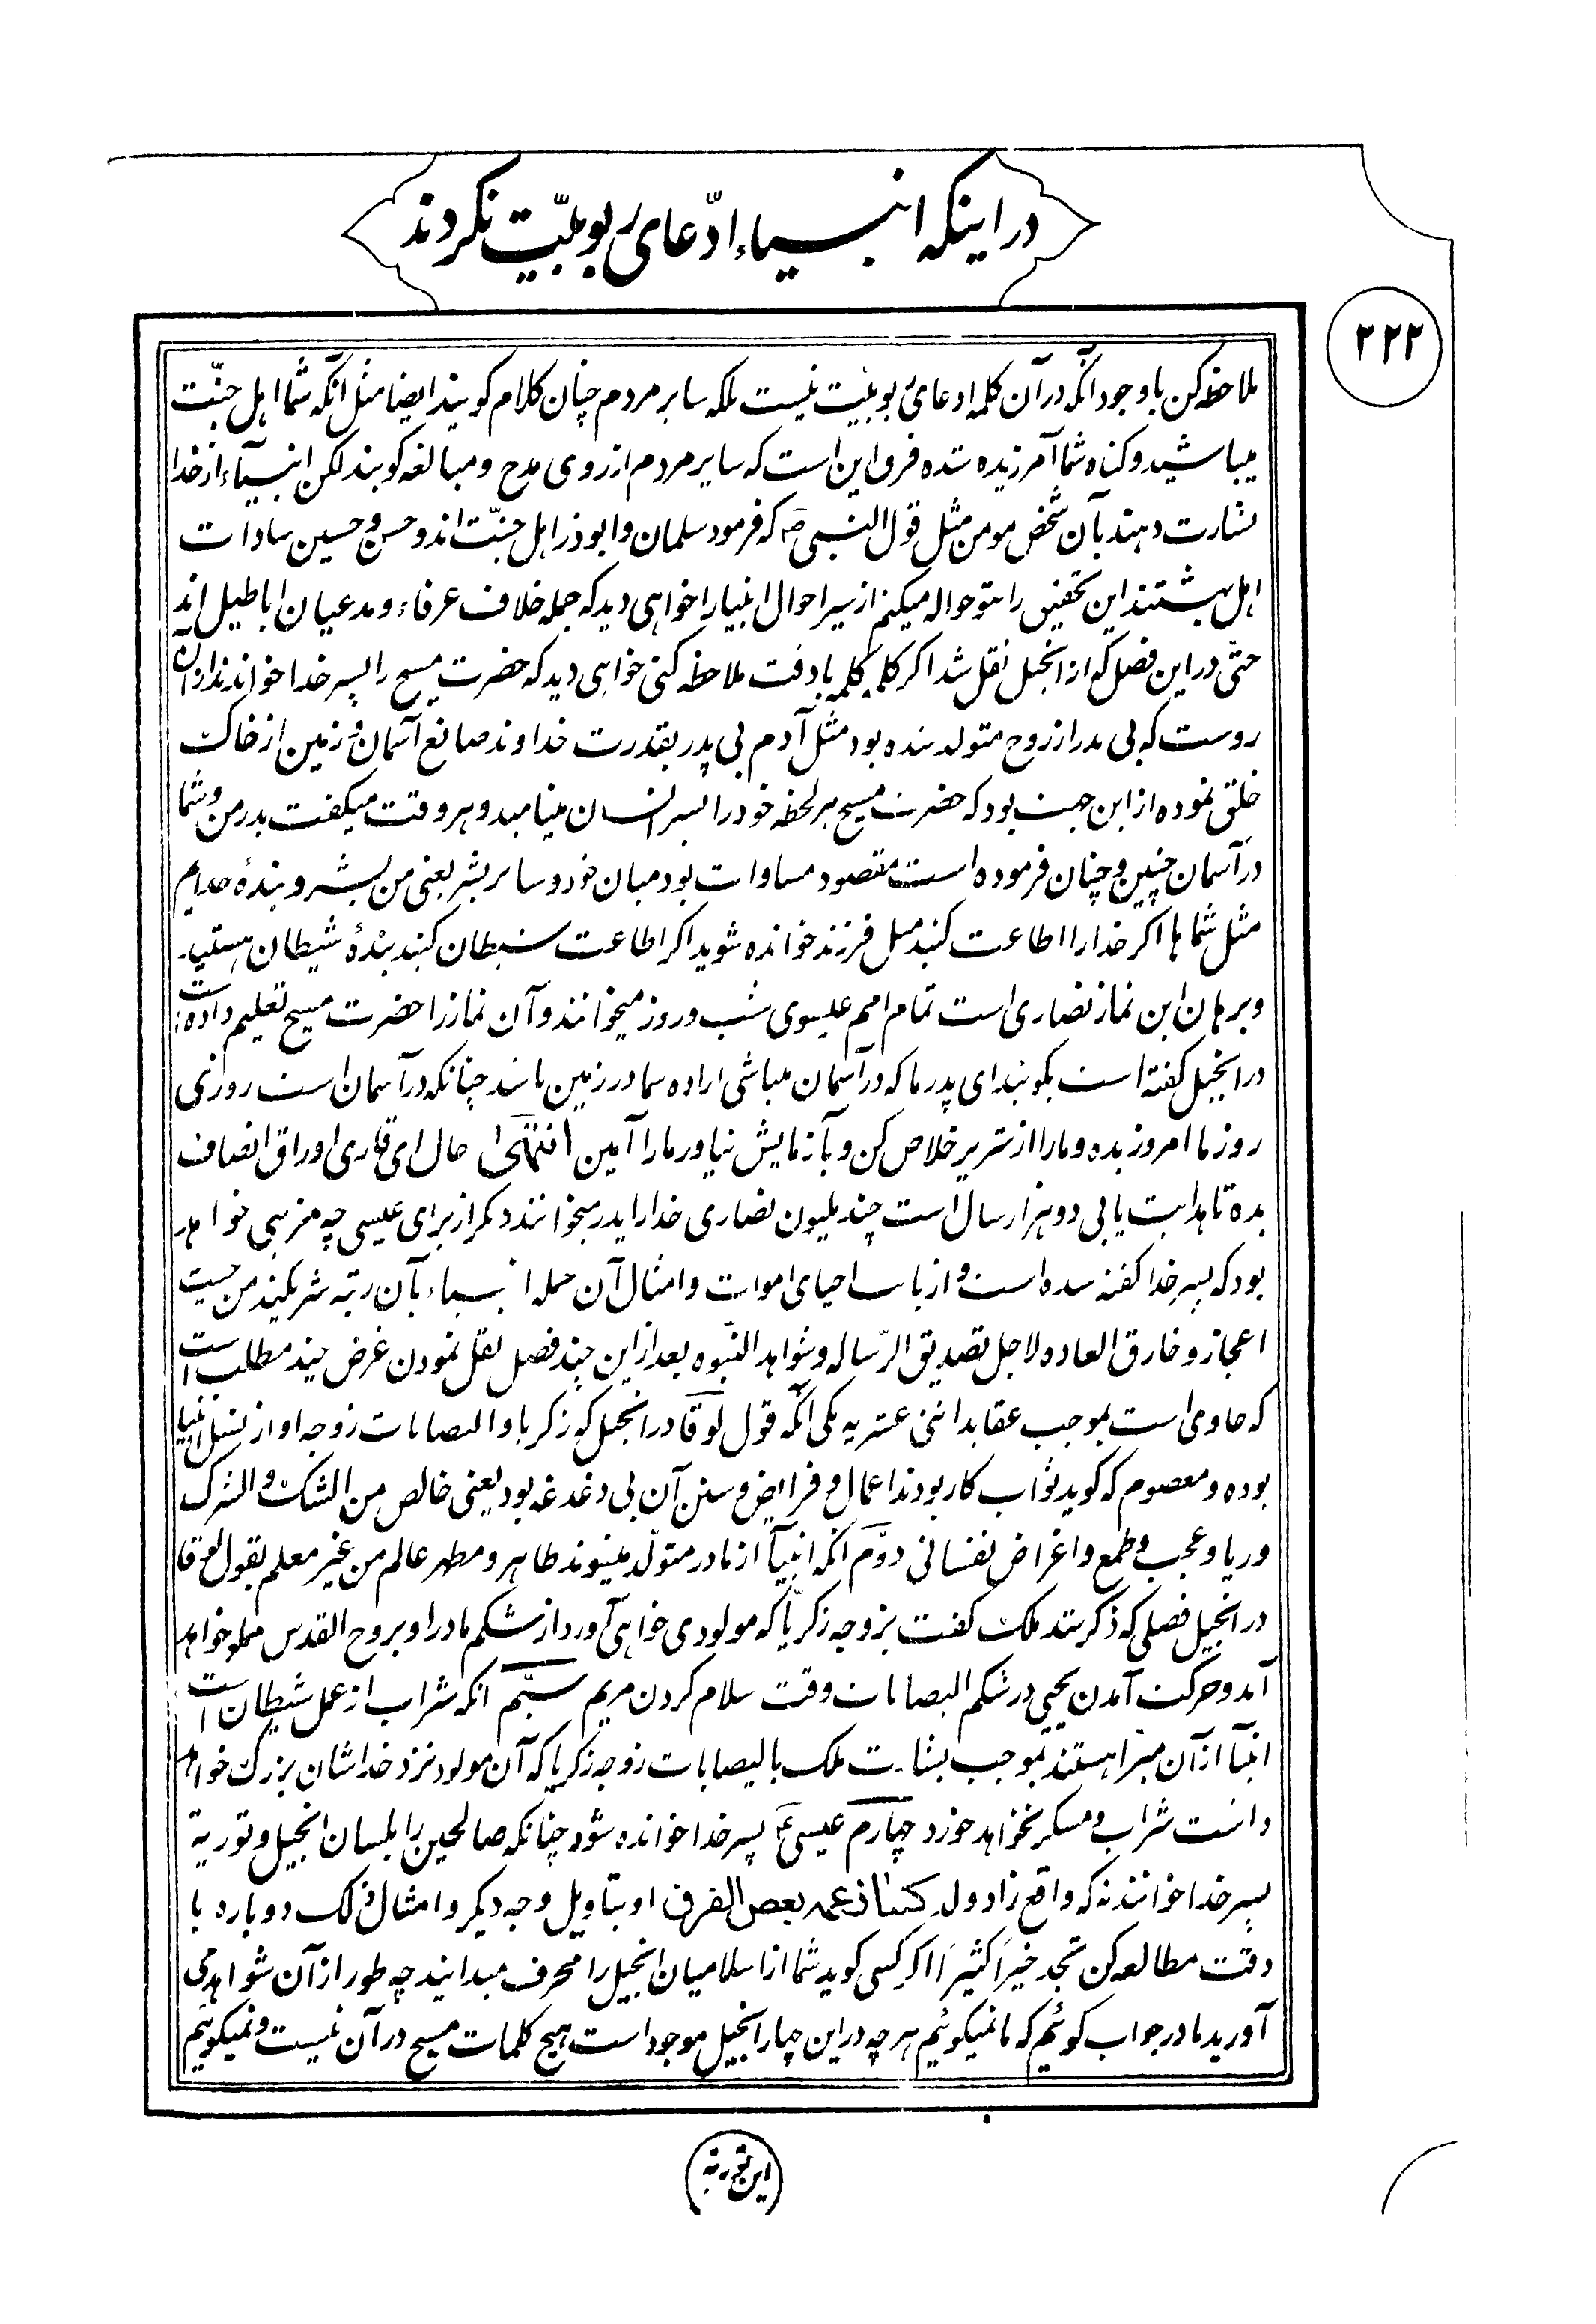 در اینکه انبیاء ادّعای ربوبیّت نکردند
۲۲۲
ملاحظه کن با وجود آنکه در آن کلمه ادعای ربوبیّت نیست بلکه سایر مردم چنان کلام گویند ایضا مثل آنکه شما اهل جنّت
میباشید و کناه شما آمرزیده شده فرق این است که سایر مردم از روی مدح و مبالغه کویند لکن انبیآء از خدا
بشارت دهند بآن شخص مومن مثل قول النبی ص که فرمود سلمان و ابوذر اهل جنّت اند و حسن و حسین سادات
اهل بهشتند این تحقیق را بتو حواله میکنم از سیر احوال انبیا را خواهی دید که جمله خلاف عرفاء و مدعیان اباطیل اند
حتّی در این فصل که از انجیل نقل شد اکر کلمه کلمه با دقت ملاحظه کنی خواهی دید که حضرت مسیح را پسر خدا خواندند از آن
روست که بی پدر از روح متولد شده بود مثل آدم بی پدر بقدرت خداوند صانع آسمان و زمین از خاک
خلق نموده از این جهت بود که حضرت مسیح هر لحظه خود را پسر انسان مینامید و هر وقت میکفت پدر من و شما
در آسمان چنین و چنان فرموده است مقصود مساوات بود میان خود و سایر بشر یعنی من بشر و بندهٔ خدایم
مثل شماها اکر خدا را اطاعت کنید مثل فرزند خوانده شوید اکر اطاعت شیطان کنید بندهٔ شیطان هستید
و برهان این نماز نصاری است تمام امم عیسوی شب و روز میخوانند و آن نماز را حضرت مسیح تعلیم داده است
در انجیل کفته است بکوئید ای پدر ما که در آسمان میباشی اراده شما در زمین باشد چنانکه در آسمان است روزی
روز ما امروز بده و ما را از شریر خلاص کن و بآزمایش نیاور ما را آمین انتهی حال ای قاری اوراق انصاف
بده تا هدایت یابی دو هزار سال است چند ملیون نصاری خدا را پدر میخوانند دکر از برای عیسی چه مزیتی خواهد
بود که پسر خدا کفته شده است و از باب احیای اموات و امثال آن جمله انبیاء بآن رتبه شریکند من حیث
اعجاز و خارق العاده لاجل تصدیق الرّساله و شواهد النّبوه بعد از این چند فصل نقل نمودن غرض چند مطلب است
که حاوی است بموجب عقاید اثنی عشریه یکی آنکه قول لوقا در انجیل که زکریا و الیصابات زوجه او از نسل انبیا
بوده و معصوم که کوید ثواب کار بودند اعمال و فرایض و سنن آن بی دغدغه بود یعنی خالص من الشک و الشرک
و ریا و عجب و طمع و اغراض نفسانی دوّم آنکه انبیآ از مادر متولّد میشوند طاهر و مطهر عالم من غیر معلم بقول لوقا
در انجیل فصلی که ذکر شد ملک کفت بزوجه زکریّا که مولودی خواهی آورد از شکم مادر او بروح القدس مملو خواهد
آمد و حرکت آمدن یحیی در شکم الیصابات وقت سلام کردن مریم سیّم آنکه شراب از عمل شیطان است
انبیآ از آن مبّرا هستند بموجب بشارت ملک بالیصابات زوجه زکریا که آن مولود نزد خدا شان بزرک خواهد
داشت شراب و مسکر نخواهد خورد چهارم عیسی ع پسر خدا خوانده شود چنانکه صالحین را بلسان انجیل و توریة
پسر خدا خوانند نه که واقع زاد و ولد کما زعمه بعض الفرق او بتاویل وجه دیکر و امثال ذلک دوباره با
دقت مطالعه کن تجد خیراً کثیراً اکر کسی کوید شما از اسلامیان انجیل را محرف میدانید چه طور از آن شواهد می
آورید ما در جواب کوئیم که ما نمیکوئیم هر چه در این چهار انجیل موجود است هیچ کلمات مسیح در آن نیست و نمیکوئیم
این توریة